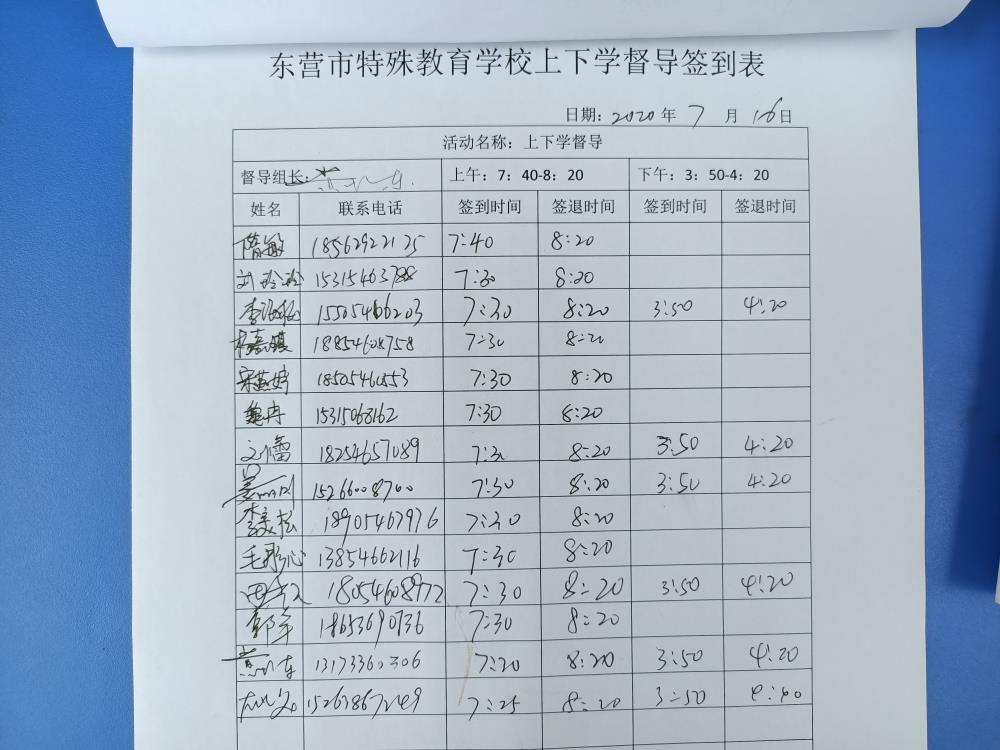 东营市特殊教育学校上下学督导签到表
日期：2020年 7 月 16日
活动名称：上下学督导
督导组长： 上午：7：40-8：20 下午：3：50-4：20
姓名 联系电话 签到时间 签退时间 签到时间 签退时间
隋敏 18562922135 7:40 8:20
刘玲玲 15315463788 7:30 8:20
李 15505466203 7:30 8:20 3:50 4:20
18854608758 7:30 8:20
宋燕婷 18505460553 7:30 8:20
魏冉 15315068162 7:30 8:20
刘蕾 18254657089 7:30 8:20 3:50 4:20
15266008700 7:30 8:20 3:50 4:20
李美松 18905467976 7:30 8:20
毛彤心 13854662116 7:30 8:20
18054608972 7:30 8:20 3:50 4:20
郭军 18653690736 7:30 8:20
13173360306 7:20 8:20 3:50 4:20
15263867249 7:25 8:20 3:50